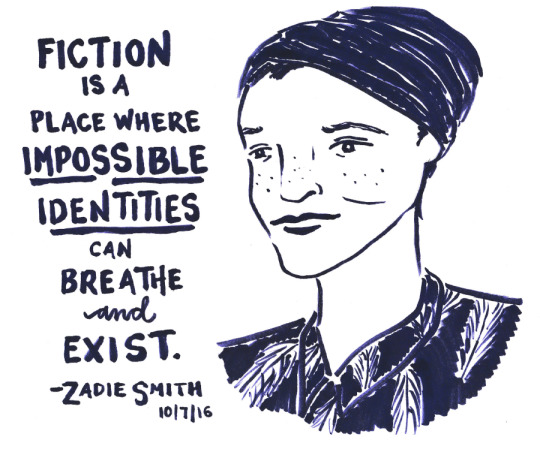 FICTION
IS A
PLACE WHERE
IMPOSSIBLE
IDENTITIES
CAN
BREATHE
and
EXIST.
-ZADIE SMITH
10/7/16